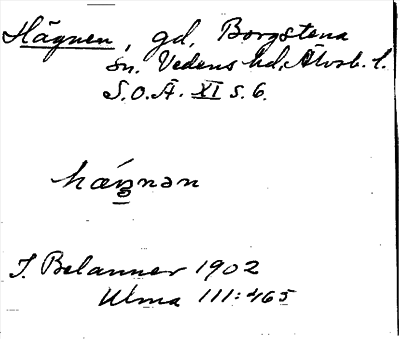 Hägnen, gd, Borgstena
sn. Vedens hd, Älvsb. l.
S.O.Ä. XI s. 6.
hǽŋnən
I. Belanner 1902
Ulma 111:465